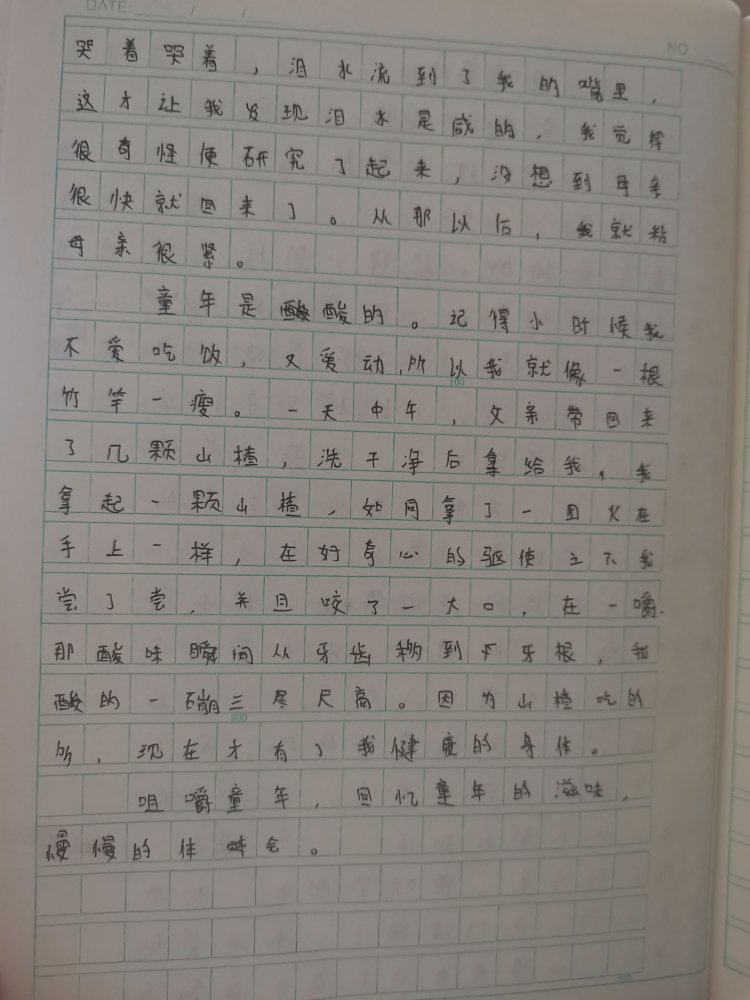 DATE: / /
NO
哭着哭着，泪水流到了我的嘴里，
这才让我发现泪水是咸的，我觉得
很奇怪便研究了起来，没想到母亲
很快就回来了。从那以后，我就粘
母亲很紧。
童年是酸酸的。记得小时候我
不爱吃饭，又爱动，所以我就像一根
竹竿一瘦。一天中午，父亲带回来
了几颗山楂，洗干净后拿给我，我
拿起一颗山楂，如同拿了一团火在
手上一样，在好奇心的驱使之下我
尝了尝，并且咬了一大口，在一嚼
那酸味瞬间从牙齿到牙根，我
酸的一蹦三尽尺高。因为山楂吃的
200
，现在才有了我健康的身体。
咀嚼童年，回忆童年的滋味，
慢慢的体会。
100